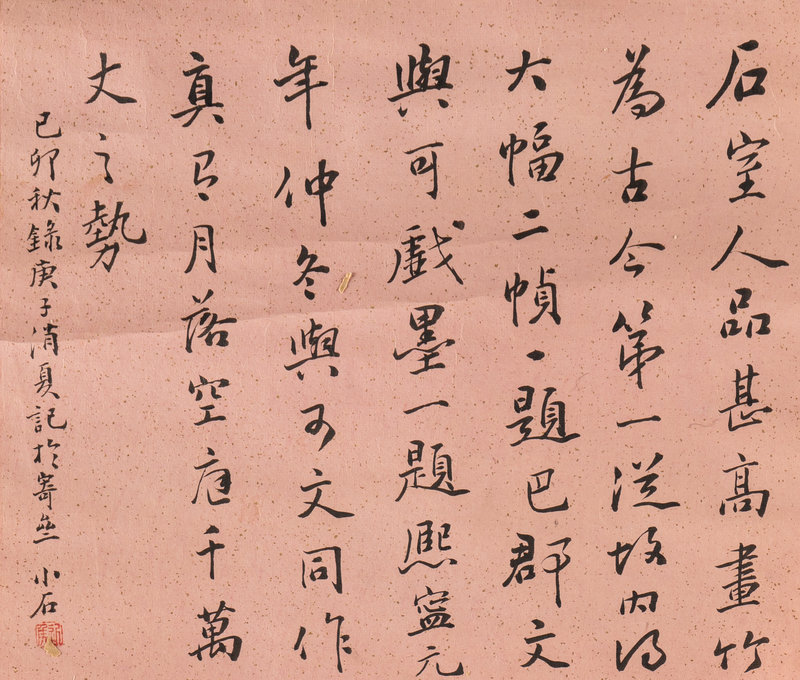 石室人品甚高畫竹
為古今第一從故內得
大幅二幀一題巴郡文
與可戲墨一題熙寧元
年仲冬與可文同作
真有月落空庭千萬
丈之勢
己卯秋錄庚子消夏記於寄 小石